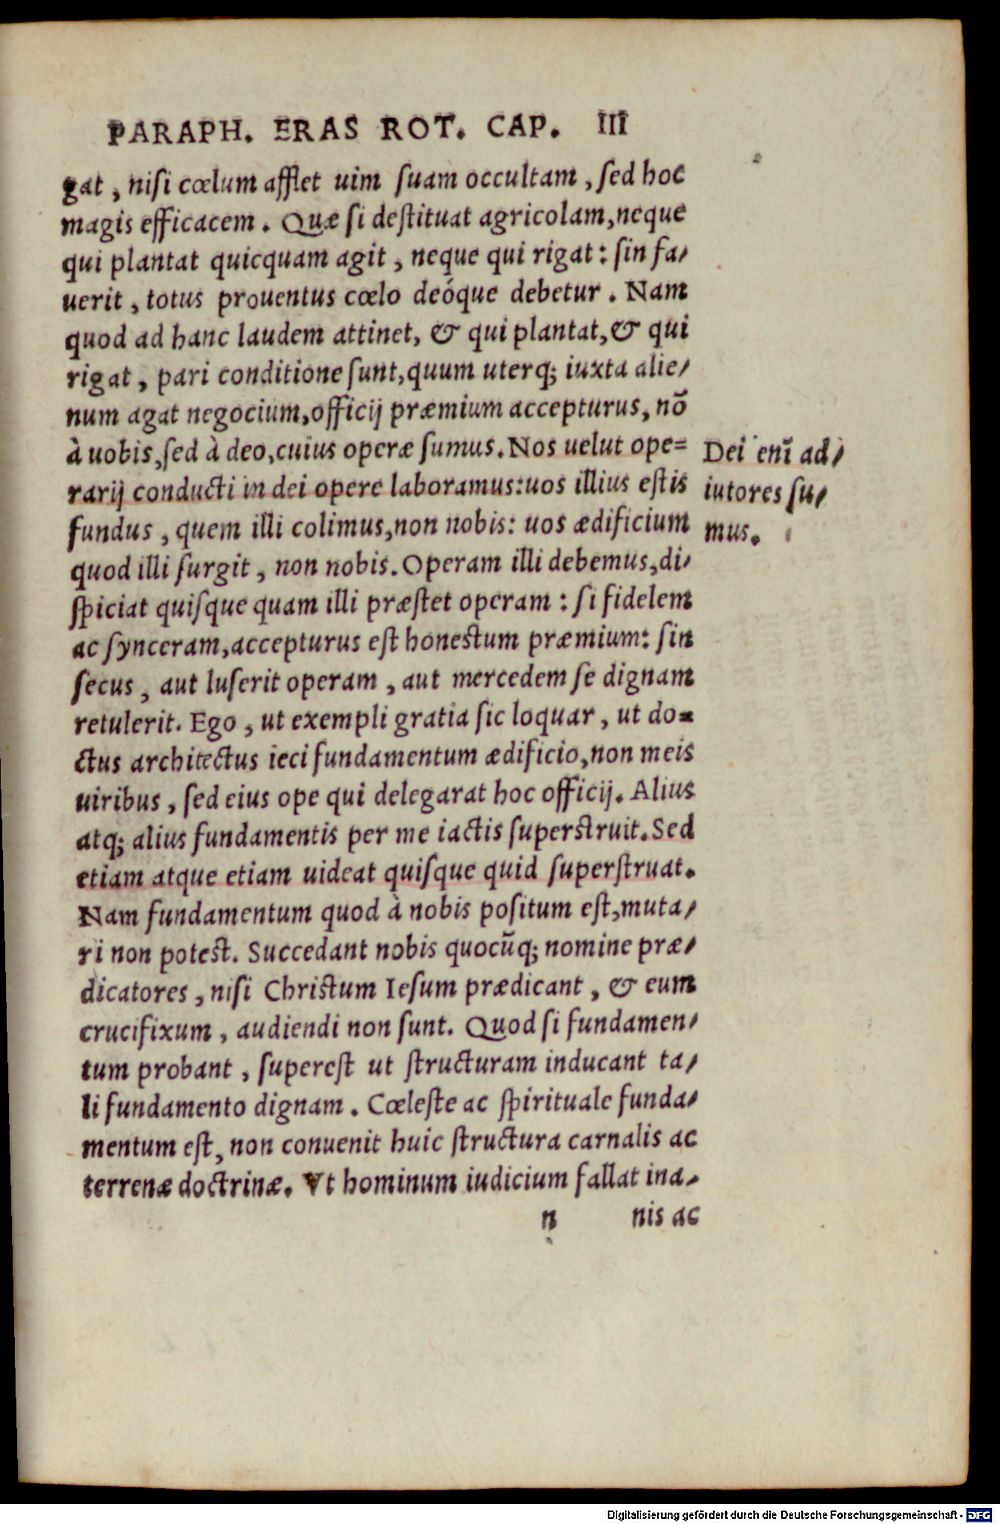 PARAPH. ERAS ROT. CAP. III
gat, nisi cœlum afflet uim suam occultam, sed hoc
magis efficacem. Quæ si destituat agricolam, neque
qui plantat quicquam agit, neque qui rigat: sin fa/
uerit, totus prouentus cœlo deóque debetur. Nam
quod ad hanc laudem attinet, & qui plantat, & qui
rigat, pari conditione sunt, quum uterq; iuxta alie/
num agat negocium, officij præmium accepturus, nõ
à uobis, sed à deo, cuius operæ sumus. Nos uelut ope=
rarij conducti in dei opere laboramus: uos illius estis
fundus, quem illi colimus, non nobis: uos ædificium
quod illi surgit, non nobis. Operam illi debemus, di/
spiciat quisque quam illi præstet operam: si fidelem
ac synceram, accepturus est honestum præmium: sin
secus, aut luserit operam, aut mercedem se dignam
retulerit. Ego, ut exempli gratia sic loquar, ut do=
ctus architectus ieci fundamentum ædificio, non meis
uiribus, sed eius ope qui delegarat hoc officij. Alius
atq; alius fundamentis per me iactis superstruit. Sed
etiam atque etiam uideat quisque quid superstruat.
Nam fundamentum quod à nobis positum est, muta/
ri non potest. Succedant nobis quocũq; nomine præ/
dicatores, nisi Christum Iesum prædicant, & eum
crucifixum, audiendi non sunt. Quod si fundamen/
tum probant, superest ut structuram inducant ta/
li fundamento dignam. Cœleste ac spirituale funda/
mentum est, non conuenit huic structura carnalis ac
terrenæ doctrinæ. Vt hominum iudicium fallat ina/
n nis ac
Dei enĩ ad/
iutores su/
mus.
Digitalisierung gefördert durch die Deutsche Forschungsgemeinschaft - DFG